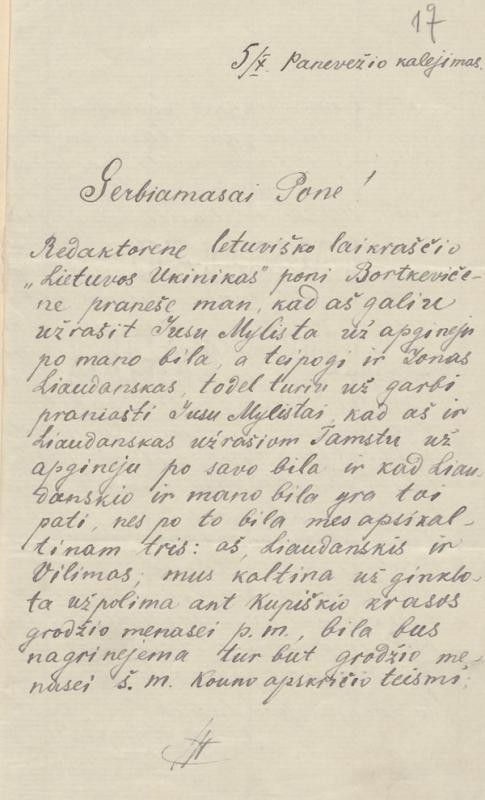 17
5/X. Panevežio kalejimas.
Gerbiamasai Pone!
Redaktorene letuviško laikraščio
„Lietuvos Ukinikas" poni Bortkeviče-
ne pranešė man, kad aš galiu
užrašit Jusu Mylista už apgineju
po mano bila, a teipogi ir Jonas
Liaudanskas, todel turiu už garbi
praniašti Jusu Mylistai, kad aš ir
Liaudanskas užrašiom Tamstu už
apgineju po savo bila ir kad Liau-
danskio ir mano bila yra toi
pati, nes po to bila mes apsikal-
tinam tris: aš, Liaudanskis ir
Vilimas; mus kaltina už ginklo-
ta užpolima ant Kupiškio krasos
grodžio menasei p. m., bila bus
nagrinejema tur but grodžio me-
nasei š. m. Kouno apskričio teismi;